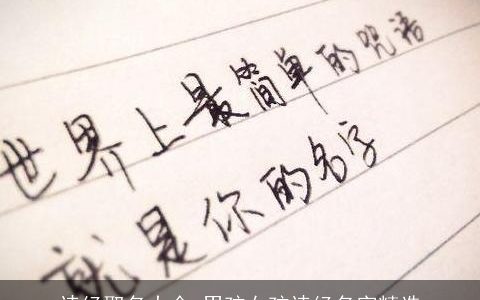 世界上最简单的咒语
就是你的名字
诗经取名大全 男孩女孩诗经名字精选